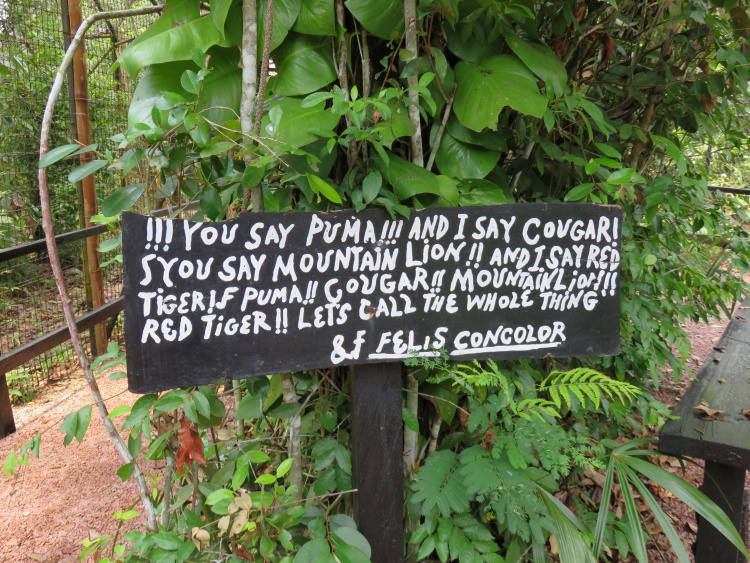 !!! YOU SAY PUMA!!! AND I SAY COUGAR!
SYOU SAY MOUNTAIN LION!! AND I SAY RED
TIGER!F PUMA!! COUGAR!! MOUNTAIN LION!!!
RED TIGER!! LETS CALL THE WHOLE THING
&F FELIS CONCOLOR